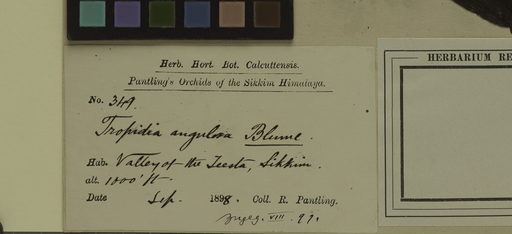 Herb. Hort. Bot. Calcuttensis.
Pantling's Orchids of the Sikkim Himalaya.
No. 349.
Tropidia angulosa Blume.
Hab. Valley of the Teesta, Sikkim.
alt. 1000' ft.
Date Sep. 1898. Coll. R. Pantling.
VIII. 99.
HERBARIUM RE